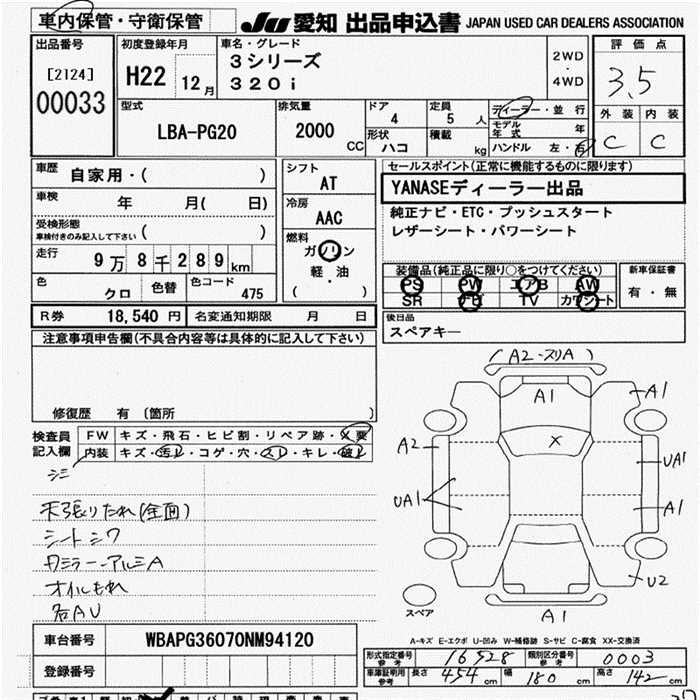 車内保管・守衛保管
JU 愛知 出品申込書 JAPAN USED CAR DEALERS ASSOCIATION
出品番号
[2124]
00033
初度登録年月
H22 12月
車名・グレード
3シリーズ
320i
2WD
・
4WD
評価点
3.5
外装 内装
C C
型式
LBA-PG20
排気量
2000
CC
ドア
4
定員
5 人
形状
ハコ
積載
kg
ディーラー・並行
モデル
年式 年
ハンドル 左・右
車歴
自家用・( )
車検 年 月( 日)
受検形態
車検付きのみ記入して下さい ( )
走行
9万8千289km
色
クロ
色替
色コード
475
シフト
AT
冷房
AAC
燃料
ガソリン
軽・油
( )
セールスポイント(正常に機能するものに限ります)
YANASEディーラー出品
純正ナビ・ETC・プッシュスタート
レザーシート・パワーシート
装備品(純正品に限り○をつけてください)
PS PW エアB AW
SR ナビ TV カワシート
新車保証書
有・無
後日品
スペアキー
R券 18,540 円
名変通知期限 月 日
注意事項申告欄(不具合内容等は具体的に記入して下さい)
修復歴 有 〔箇所 〕
検査員
記入欄
FW キズ・飛石・ヒビ割・リペア跡・X要
内装 キズ・汚れ・コゲ・穴・スレ・キレ・破れ
シミ
天張りたれ(全面)
シートシワ
カミラー・アルミA
オイルもれ
各AU
(A2-スリA)
A1
A1
A2
X
UA1
UA1
A1
U2
スペア
A1
A-キズ E-エクボ U-凹み W-補修跡 S-サビ C-腐食 XX-交換済
車台番号
WBAPG36070NM94120
登録番号
形式指定番号
参考
16528
類別区分番号
参考
0003
車庫証明用
参考
長さ 454 cm 幅 180 cm 高さ 142 cm